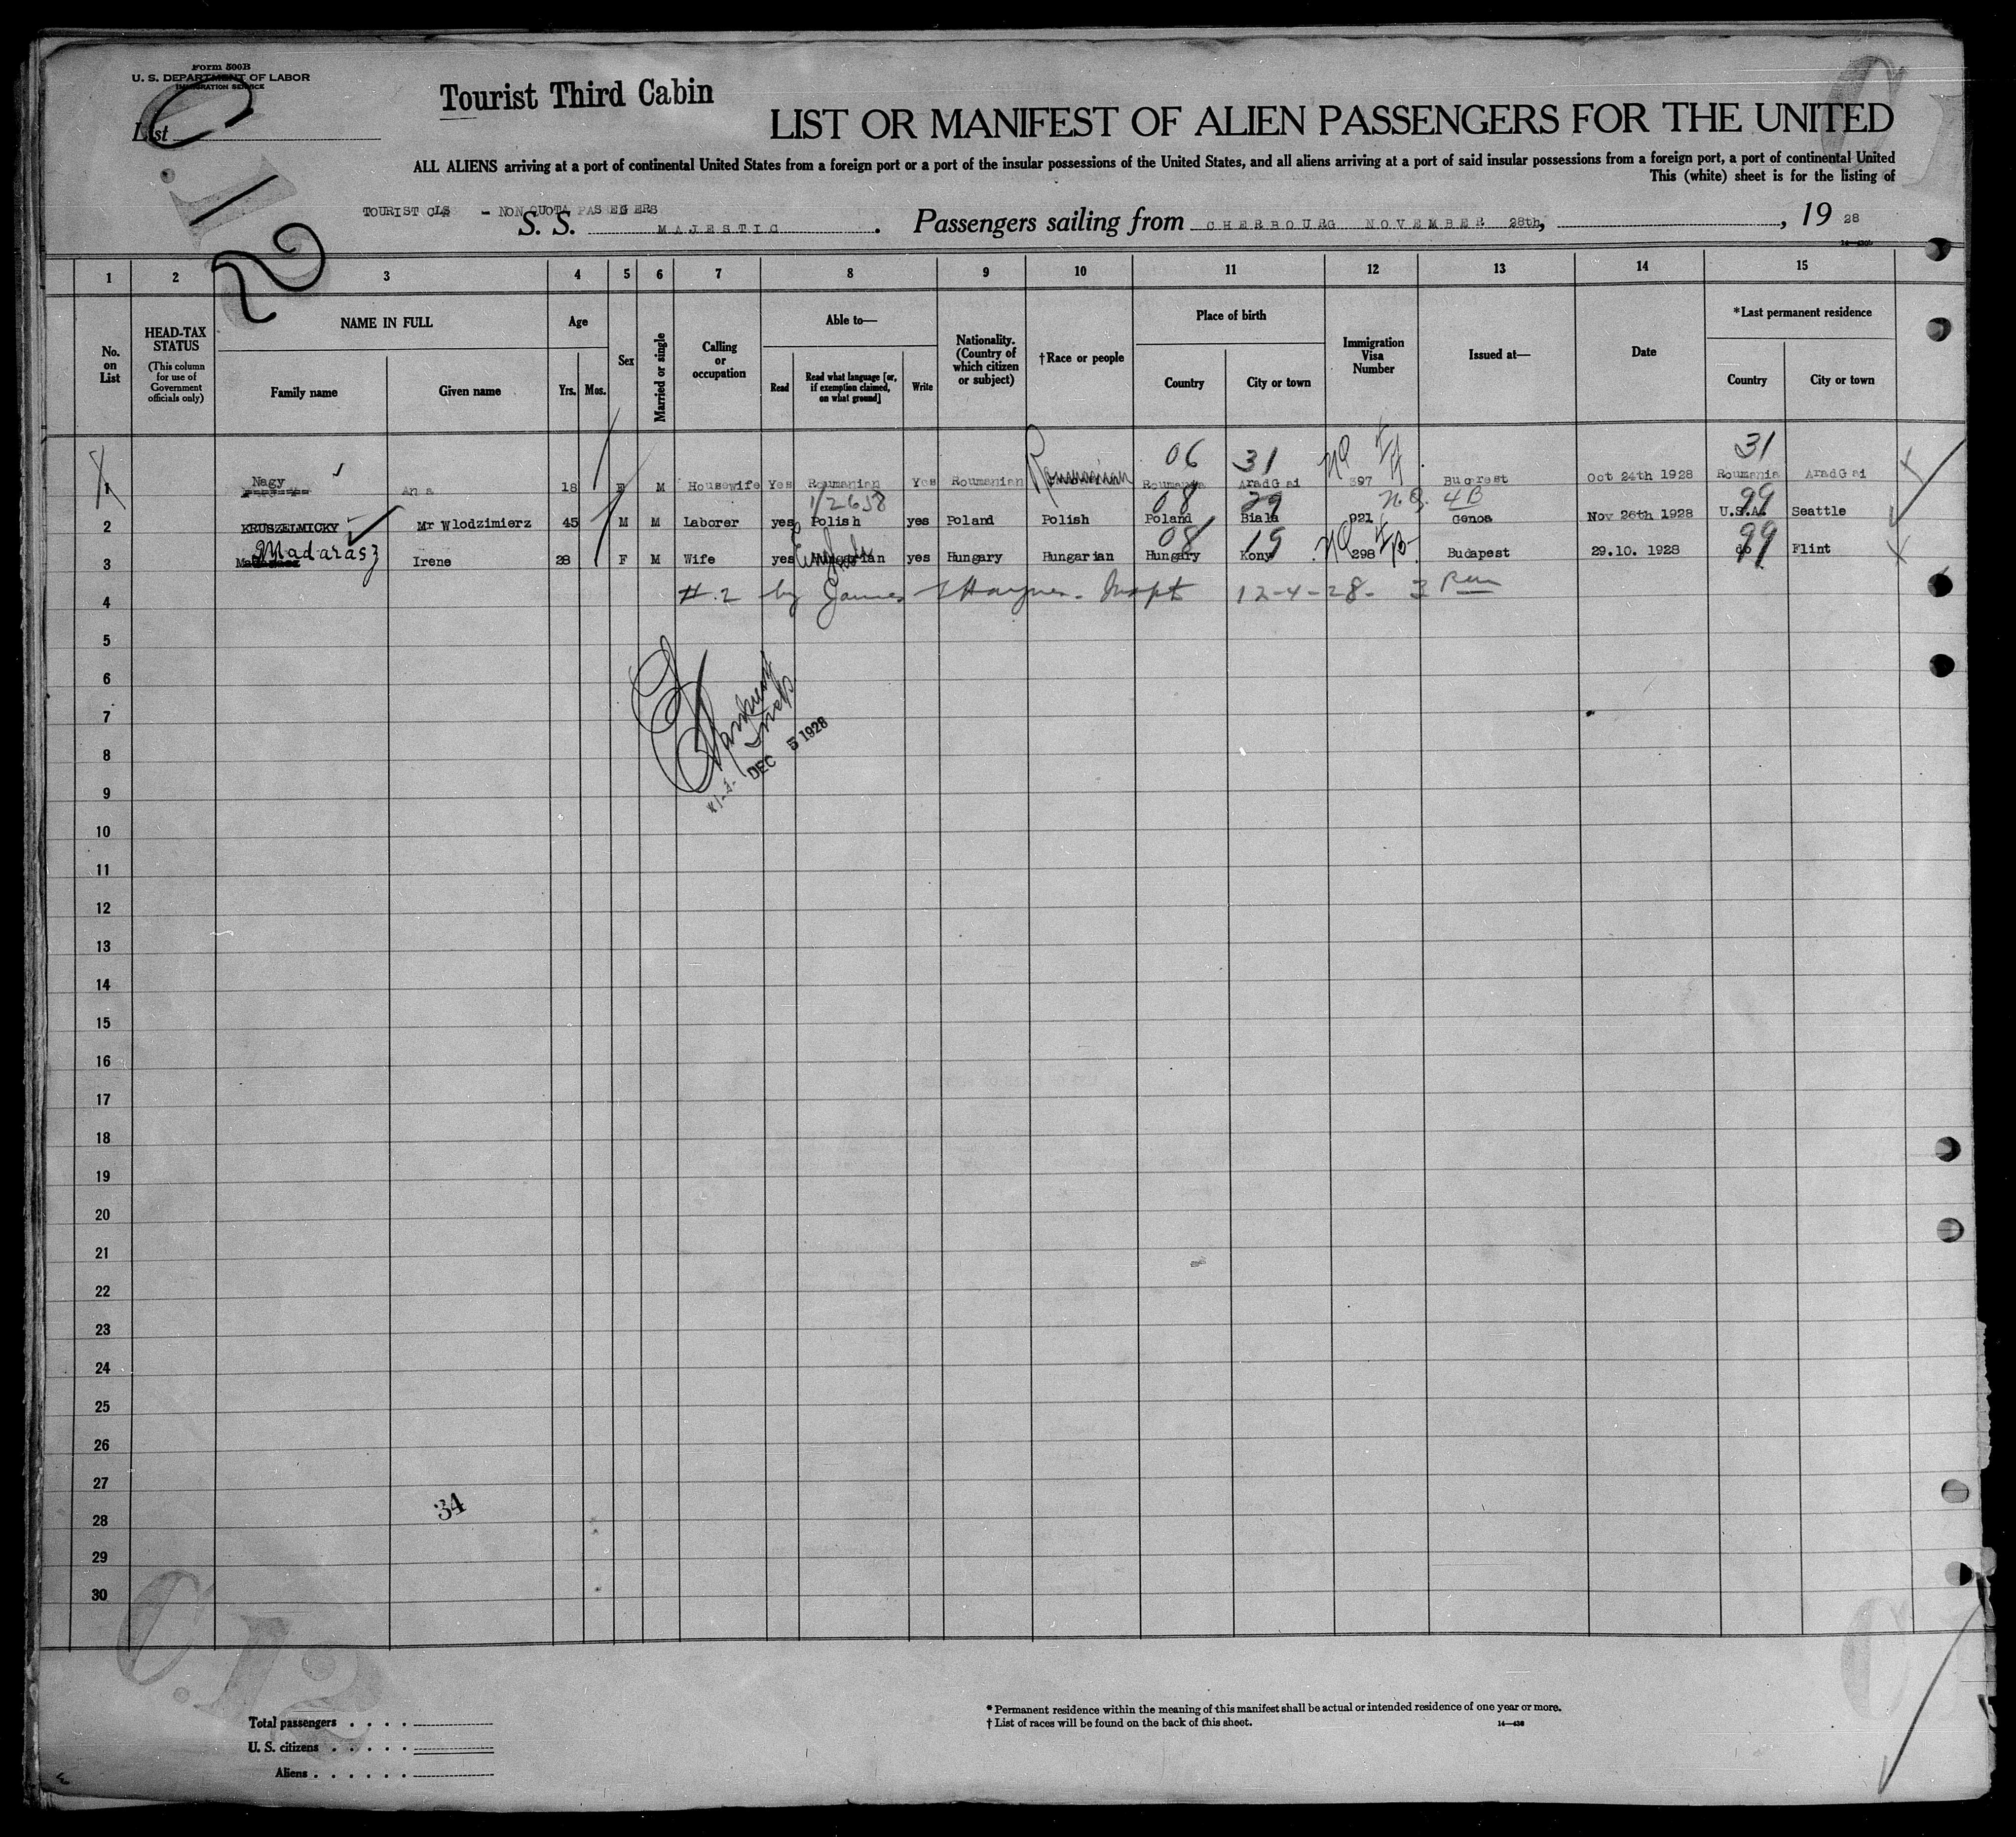 Form 500B
U. S. DEPARTMENT OF LABOR
IMMIGRATION SERVICE
List
Tourist Third Cabin
LIST OR MANIFEST OF ALIEN PASSENGERS FOR THE UNITED
ALL ALIENS arriving at a port of continental United States from a foreign port or a port of the insular possessions of the United States, and all aliens arriving at a port of said insular possessions from a foreign port, a port of continental United
This (white) sheet is for the listing of
TOURIST CLS - NON QUOTA PASSENGERS
S. S. MAJESTIC. Passengers sailing from CHERBOURG NOVEMBER 28th, , 19 28
1 2 3 4 5 6 7 8 9 10 11 12 13 14 15
No. on List
HEAD-TAX STATUS
(This column for use of Government officials only)
NAME IN FULL
Family name
Given name
Age
Yrs.
Mos.
Sex
Married or single
Calling or occupation
Able to—
Read
Read what language [or, if exemption claimed, on what ground]
Write
Nationality. (Country of which citizen or subject)
†Race or people
Place of birth
Country
City or town
Immigration Visa Number
Issued at—
Date
*Last permanent residence
Country
City or town
06 31 NQ 31
1 Nagy 18 F M Housewife Yes Roumanian Yes Roumanian Roumanian Roumania AradGai 397 Bucarest Oct 24th 1928 Roumania AradGai
1/2658 08 29 N.Q. 4B 99
2 KRUSZELMICKY Mr Wlodzimierz 45 M M Laborer yes Polish yes Poland Polish Poland Biala 921 Genoa Nov 26th 1928 U.S.A. Seattle
Madarasz English 08 19 NQ 99
3 Irene 28 F M Wife yes Hungarian yes Hungary Hungarian Hungary Kony 298 Budapest 29.10. 1928 do Flint
4 #2 by James Haynes Inspt 12-4-28-
5
6
7
8
DEC 5 1928
9
10
11
12
13
14
15
16
17
18
19
20
21
22
23
24
25
26
27
34
28
29
30
C.12
Total passengers . . . .
U. S. citizens . . . . .
Aliens . . . . . .
* Permanent residence within the meaning of this manifest shall be actual or intended residence of one year or more.
† List of races will be found on the back of this sheet.
14—430